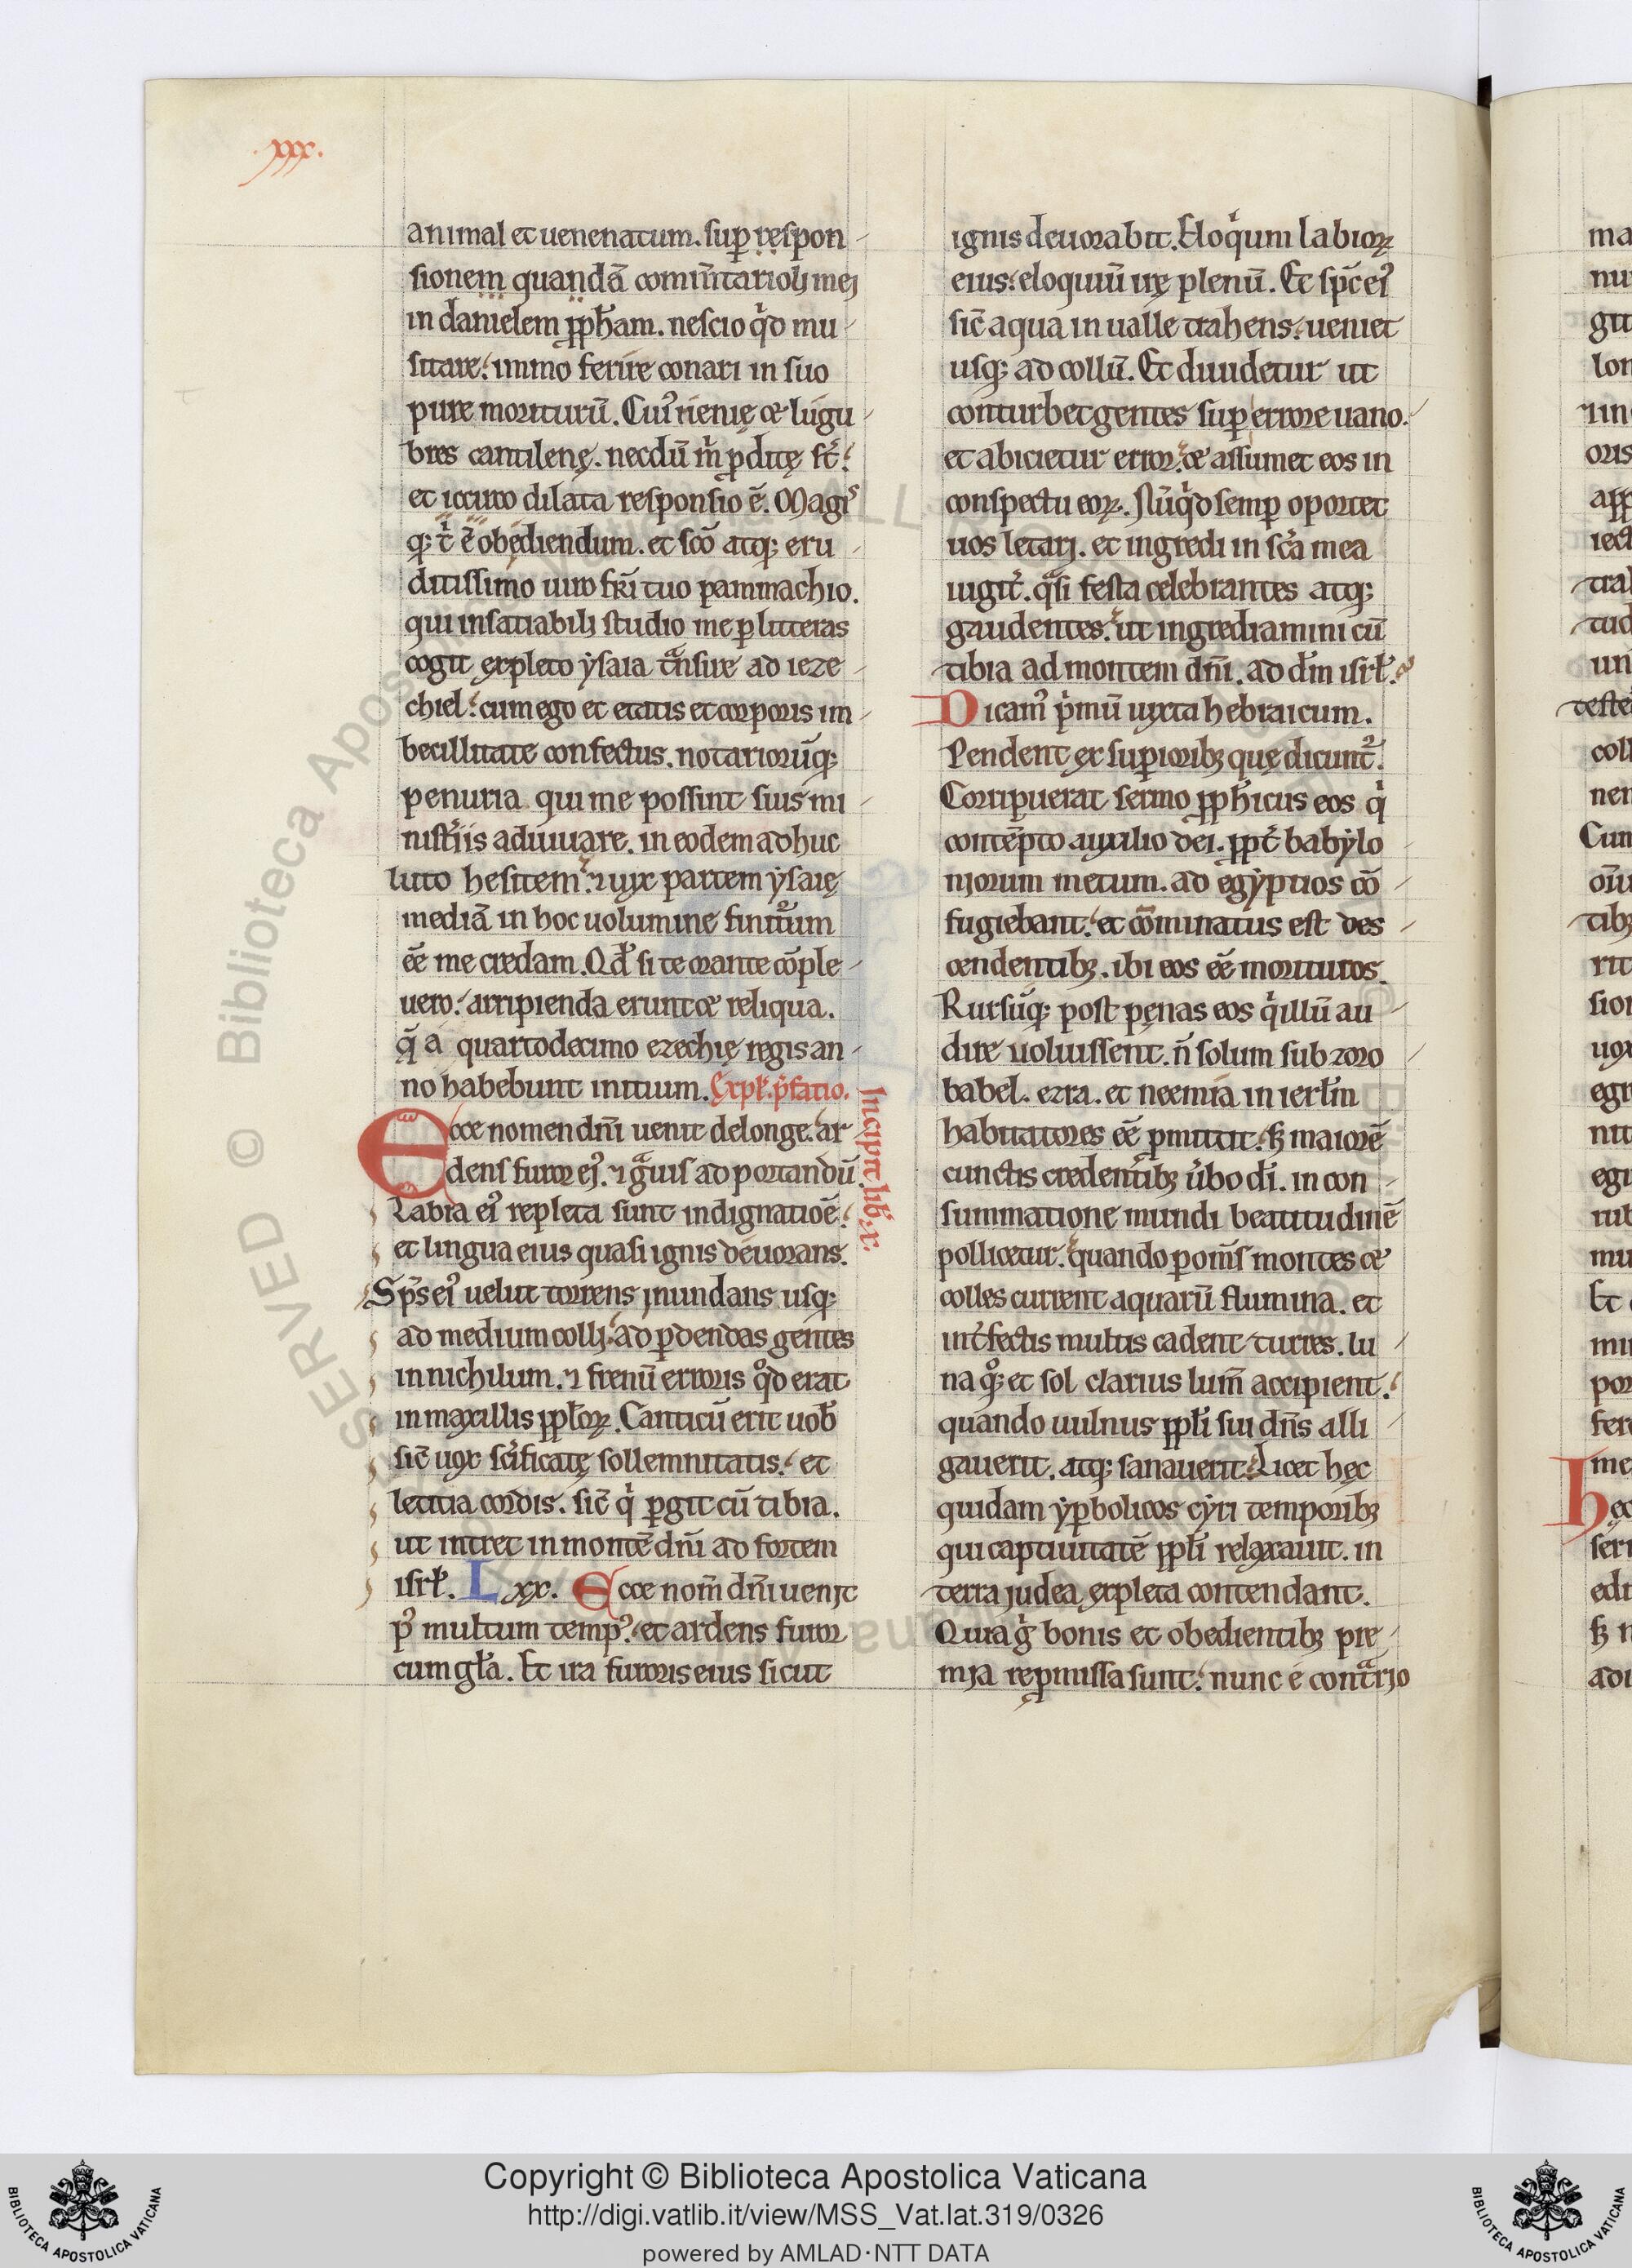 .xxx.
animal et uenenatum. sup̱ respon
sionem quandā com̄m̄tarioli mei
in danielem ꝓph̄am. nescio qͥd mu
sitare. immo ferire conari in suo
pure moriturū. Cuiꝰ nenię ⁊ lugu
bres cantilenę. necdū m̄ ꝓditę st̄.
et iccirco dilata responsio ē. Magiˢ
qꝫ t̄ ē obediendum. et sc̄o atqꝫ eru
ditissimo uiro fr̄i tuo pammachio.
qui insatiabili studio me ꝑ litteras
cogit expleto ẏsaia tᵃnsire ad ieze
chiel. cum ego et etatis et corporis im
becillitate confectus. notariorūqꝫ
penuria qui me possint suis mi
nist̄iis adiuuare. in eodem adhuc
luto hesitem. ⁊ uix partem ẏsaię
mediā in hoc uolumine finitum
eē me credam. Qd̄ si te orante cōple
uero. arripienda erunt ⁊ reliqua.
q̄ a quartodecimo ezechię regis an
no habebunt initium. Expł. p̄fatio.
Incipit lib̄. x.
Ecce nomen dn̄i uenit de longe. ar
dens furor eiꝰ. ⁊ gᵃuis ad portandū.
Labia eiꝰ repleta sunt indignatiōe.
et lingua eius quasi ignis deuorans.
Sp̄s eiꝰ uelut torrens inundans usqꝫ
ad medium colli. ad ꝑdendas gentes
in nichilum. ⁊ frenū erroris qͦd erat
in maxillis ppłoꝝ. Canticū erit uob̄
sic̄ uox sc̄ificatę sollemnitatis. et
letitia cordis. sic̄ qͥ ꝑgit cū tibia.
ut intret in montē dn̄i ad fortem
isrł. Lxx. Ecce nom̄ dn̄i uenit
pꝰ multum tempꝰ. et ardens furor
cum gl̄a. Et ira furoris eius sicut
ignis deuorabit. Eloqͥum labioꝝ
eius. eloquiū irę plenū. Et sp̄c eiꝰ
sic̄ aqua in ualle trahens. ueniet
usqꝫ ad collū. Et diuidetur ut
conturbet gentes sup̱ errore uano.
et abicietur error. ⁊ assumet eos in
conspectu eoꝝ. Nūqͥd semp̱ oportet
uos letari. et ingredi in sc̄a mea
iugit̄. qᵃsi festa celebrantes atqꝫ
gaudentes. ut ingrediamini cū
tibia ad montem dn̄i. ad d̄m isrł.
Dicamꝰ pͥmū iuxta hebraicum.
Pendent ex sup̱ioribꝫ quę dicunt̄.
Corripuerat sermo ꝓph̄icus eos qͥ
contēpto auxilio dei. ꝓpt̄ babẏlo
niorum metum. ad egẏptios cō
fugiebant. et cōminatus est des
cendentibꝫ. ibi eos eē morituros.
Rursūqꝫ post penas eos qͥ illū au
dire uoluissent. n̄ solum sub zoro
babel. ezra. et neemia in ierłm
habitatores eē ꝑmittit. sꝫ maiorē
cunctis credentibꝫ ūbo d̄i. in con
summatione mundi beatitudinē
pollicetur. quando p om̄s montes ⁊
colles current aquarū flumina. et
int̄fectis multis cadent turres. lu
na qͦꝫ et sol clarius lum̄ accipient.
quando uulnus ppłi sui dn̄s alli
gauerit. atqꝫ sanauerit. Licet hęc
quidam ẏp̱bolicos cẏri temporibꝫ
qui captiuitatē ppłi relaxauit. in
terra judea expleta contendant.
Quia gͥ bonis et obedientibꝫ pre
mia repmissa sunt. nunc e contᵃrio
Copyright © Biblioteca Apostolica Vaticana
http://digi.vatlib.it/view/MSS_Vat.lat.319/0326
powered by AMLAD·NTT DATA
BIBLIOTECA APOSTOLICA VATICANA
BIBLIOTECA APOSTOLICA VATICANA